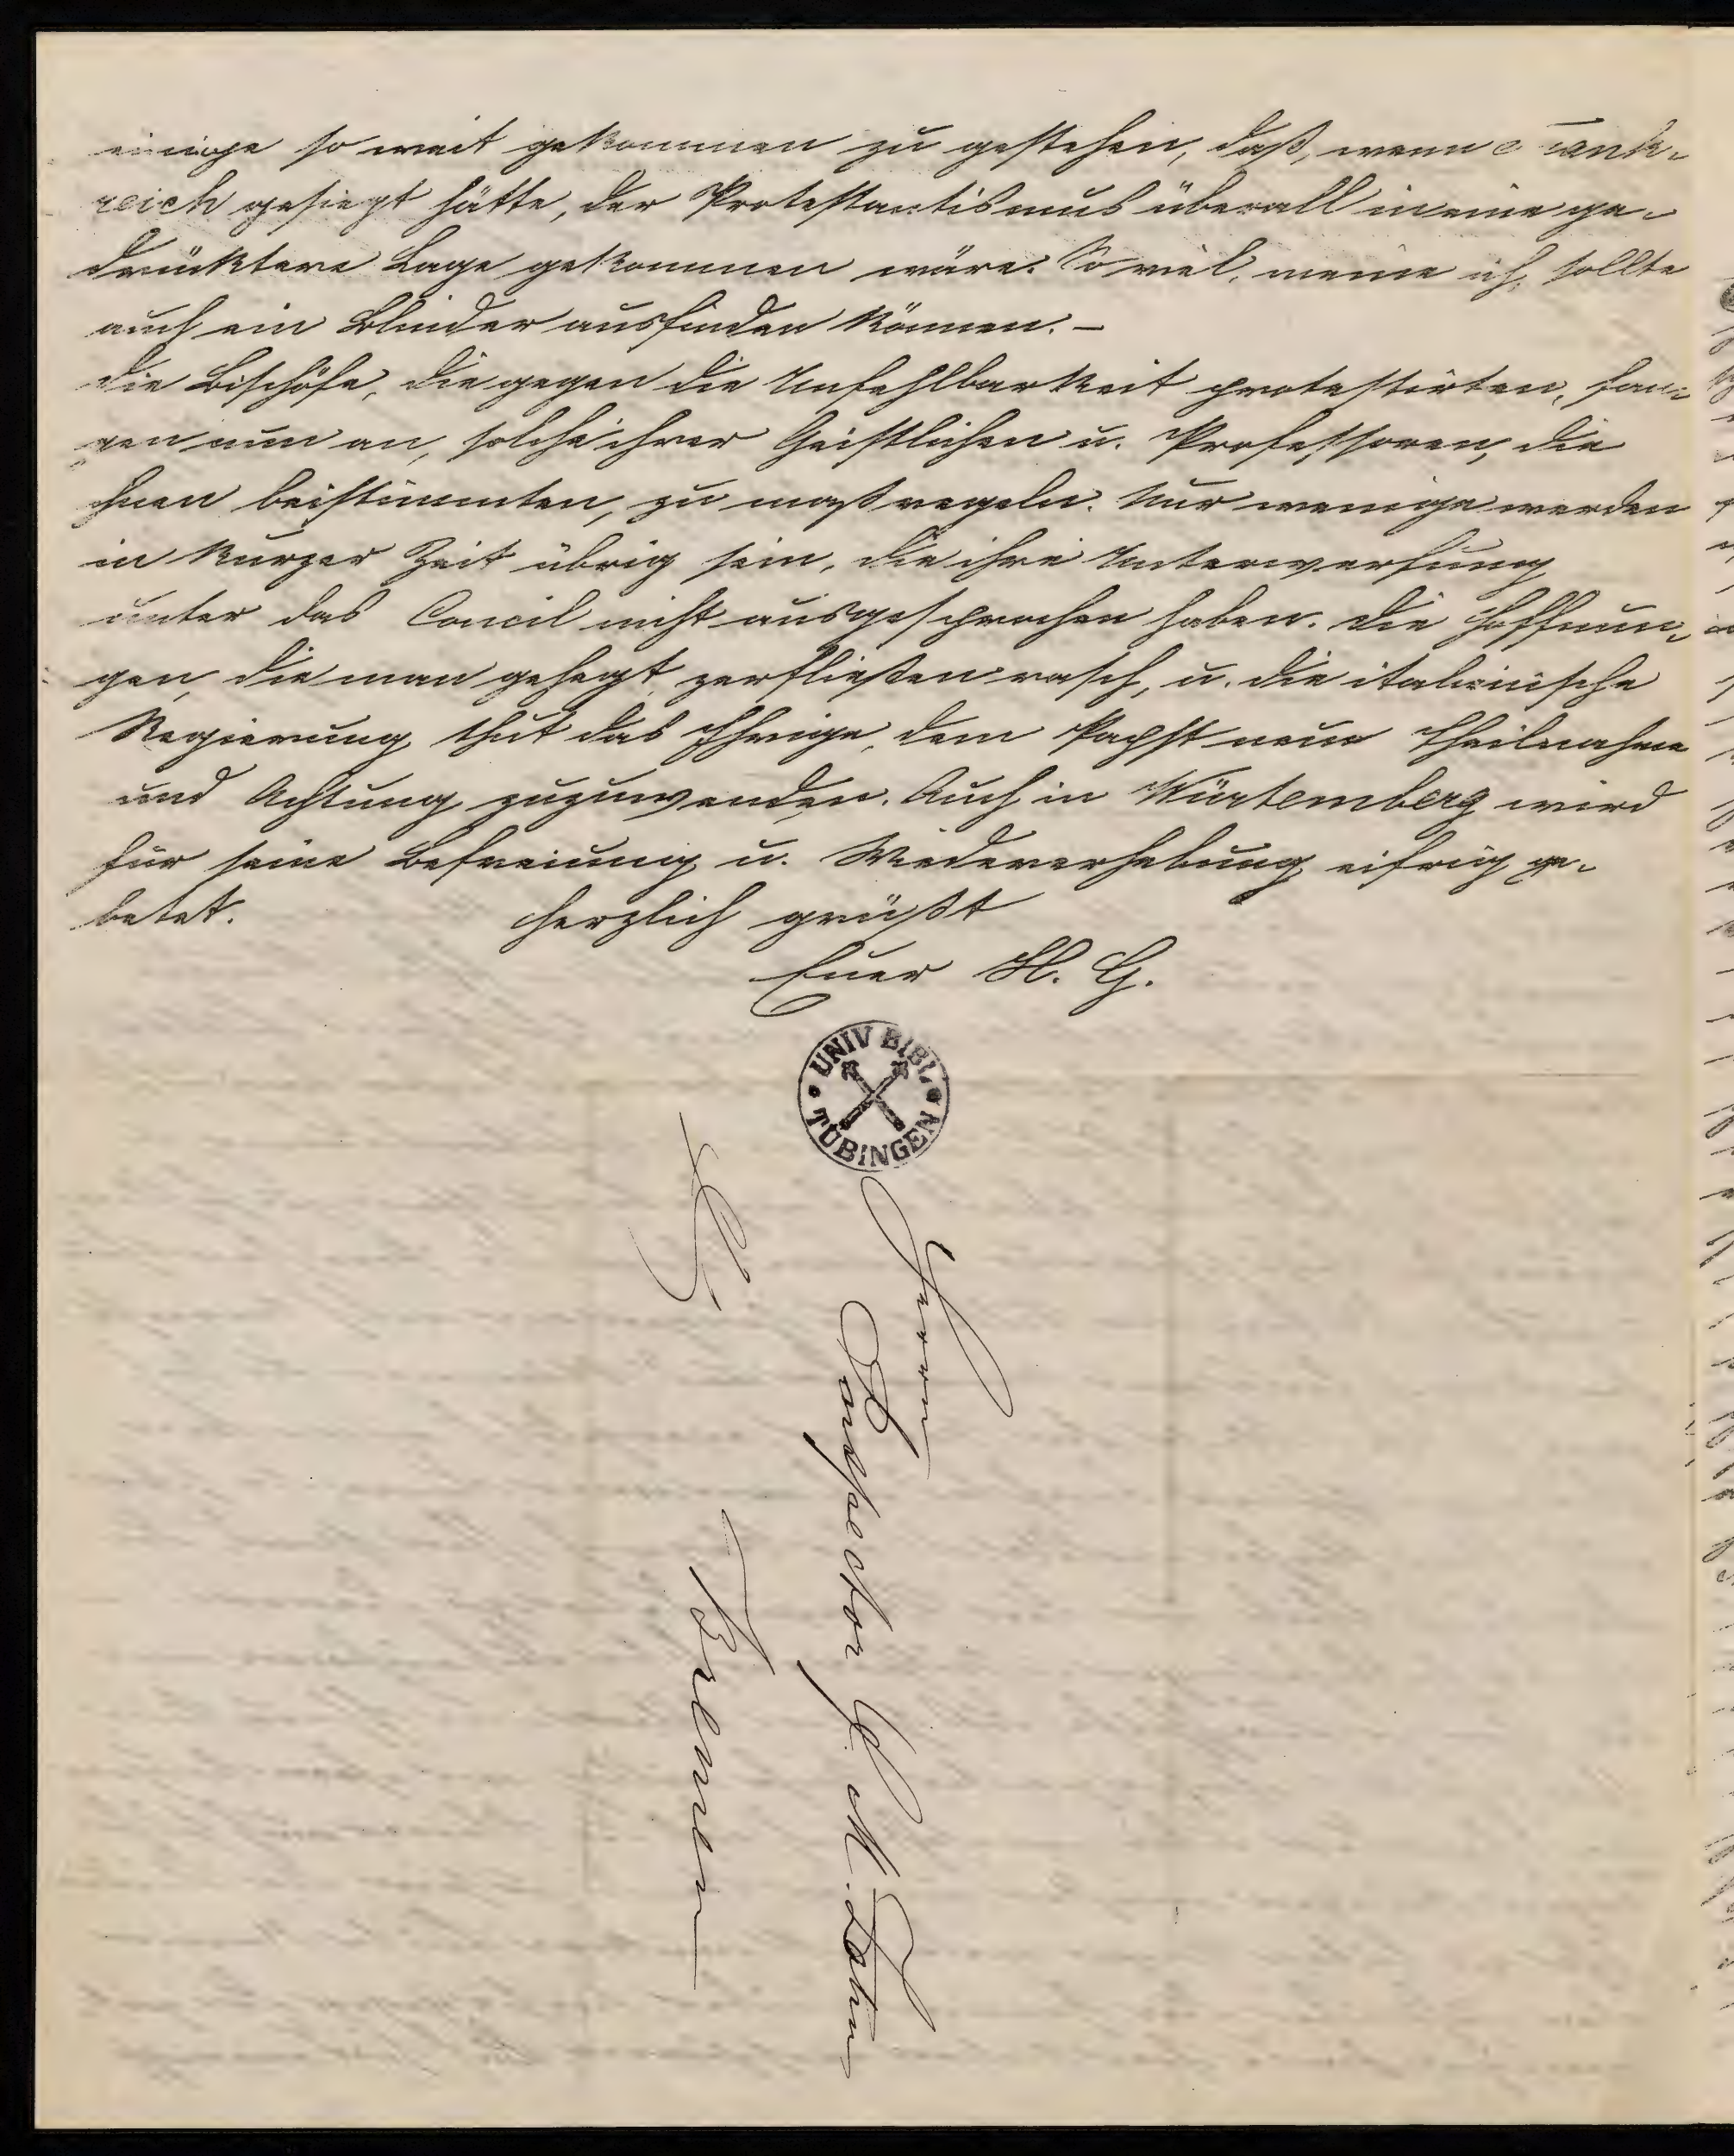 einige so weit gekommen zu gestehen, daß, wenn Frank-
reich gesiegt hätte, der Protestantismus überall in eine ge-
drücktere Lage gekommen wäre. So viel, meine ich, sollte
auch ein Blinder ausfinden können. –
Die Bischöfe, die gegen die Unfehlbarkeit protestirten, fan-
gen nun an, solche ihrer Geistlichen u. Professoren, die
ihnen beistimmten, zu maßregeln. Nur wenige werden
in kurzer Zeit übrig sein, die ihre Unterwerfung
unter das Concil nicht ausgesprochen haben. Die Hoffnun-
gen, die man gehegt, zerfließen rasch, u. die italienische
Regierung thut das Ihrige, dem Papst neue Theilnahme
und Achtung zuzuwenden. Auch in Würtemberg wird
für seine Befreiung u. Wiedererhebung eifrig ge-
betet. Herzlich grüßt
Euer H. G.
UNIV BIBL.
TÜBINGEN
Herrn
Inspector M. Zahn
Bremen